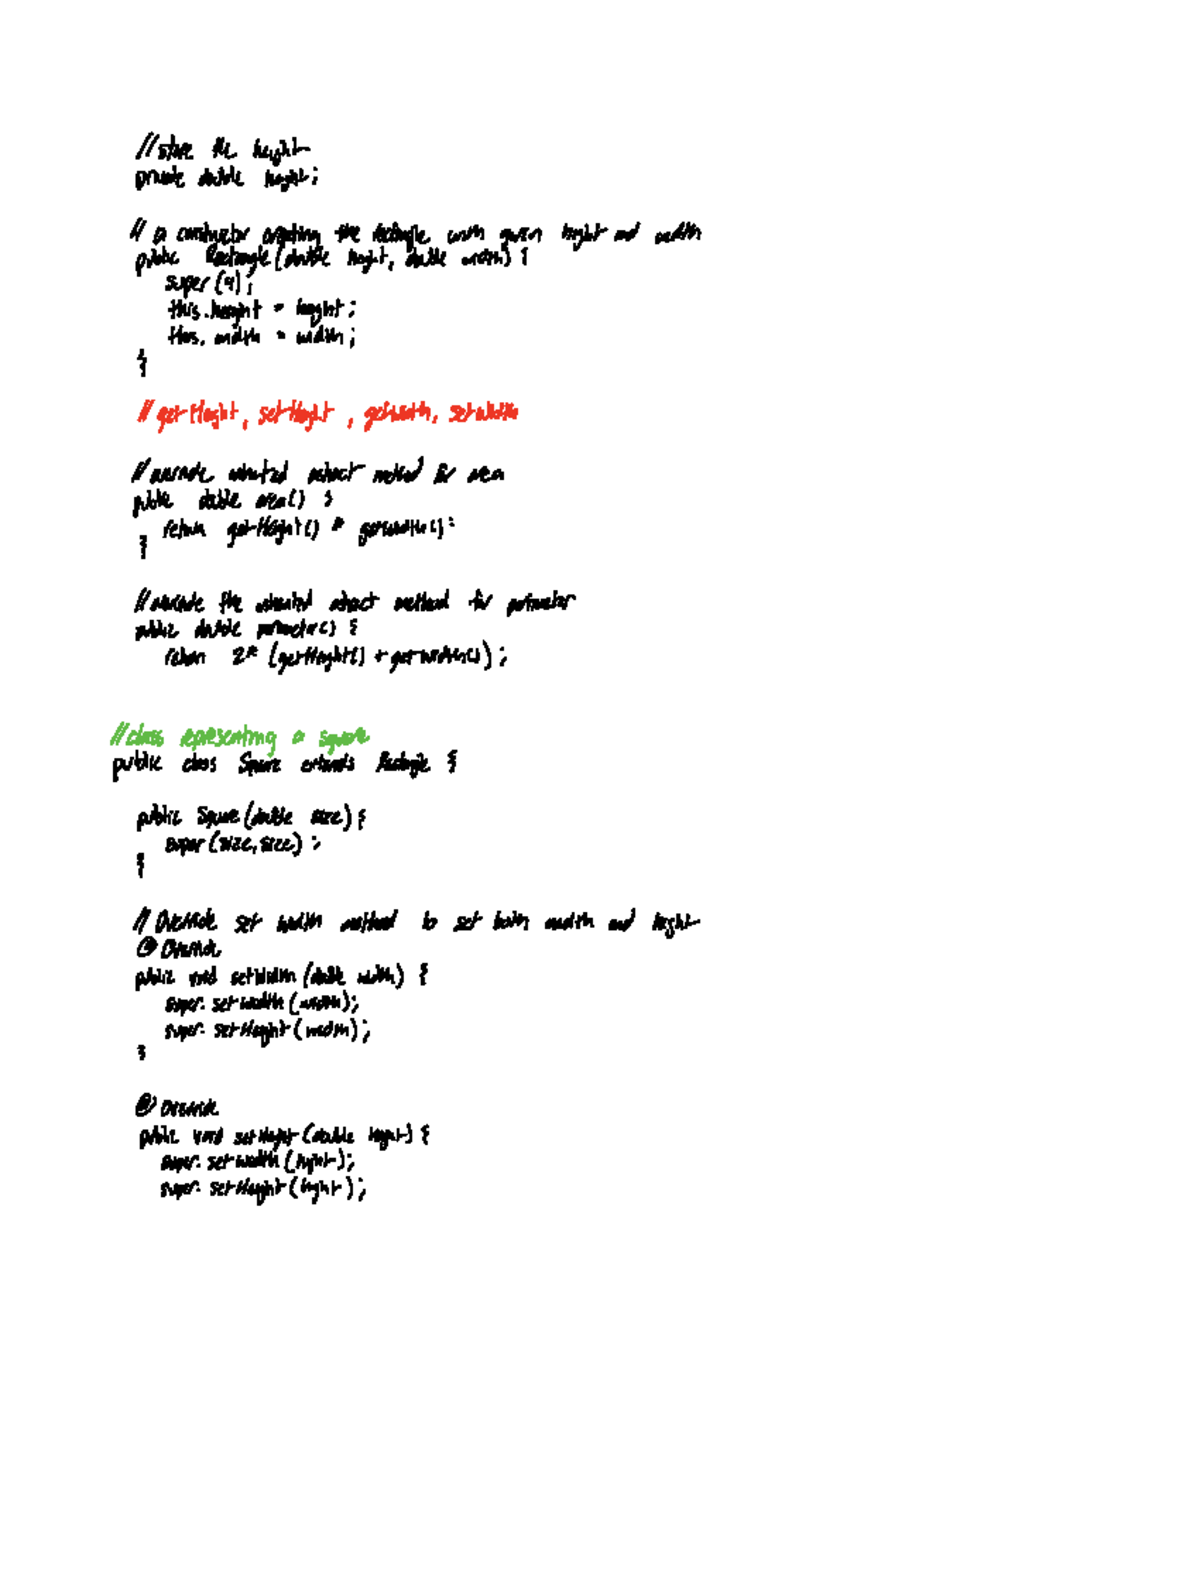 // store the height
private double height;
// a constructor creating the rectangle with given height and width
public Rectangle (double height, double width) {
super (4);
this.height = height;
this.width = width;
}
// getHeight, setHeight, getWidth, setWidth
// override inherited abstract method for area
public double area() {
return getHeight() * getWidth();
}
// override the inherited abstract method for perimeter
public double perimeter() {
return 2* (getHeight() + getWidth());
// class representing a square
public class Square extends Rectangle {
public Square (double size) {
super (size, size);
}
// Override set width method to set both width and height
@Override
public void setWidth (double width) {
super.setWidth (width);
super.setHeight (width);
}
@Override
public void setHeight (double height) {
super.setWidth (height);
super.setHeight (height);